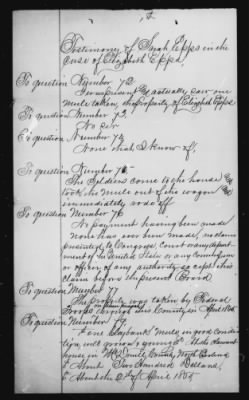 Testimony of Sarah Epps in the
case of Elizabeth Epps,
To question Number 72
I was present & actually saw one
mule taken, the property of Elizabeth Epps
To question Number 73,
No sir
To question Number 74
None that I know of,
To question Number 75
The Soldiers come to the house
took the mule out of the wagon
immediately rode off
To question Number 76
No payment having been made
None has ever been made, no claim
presented to Congress, Court or any depart-
ment of the United States or any
or officer of any authority except this
claim before the present Board
To question Number 77
The property was taken by Federal
Troops
To question Number 78
One claybank Mule, in good condition
well grown & young at the claimant
house in County, North Carolina
About Two hundred Dollars,
About the of April 1865